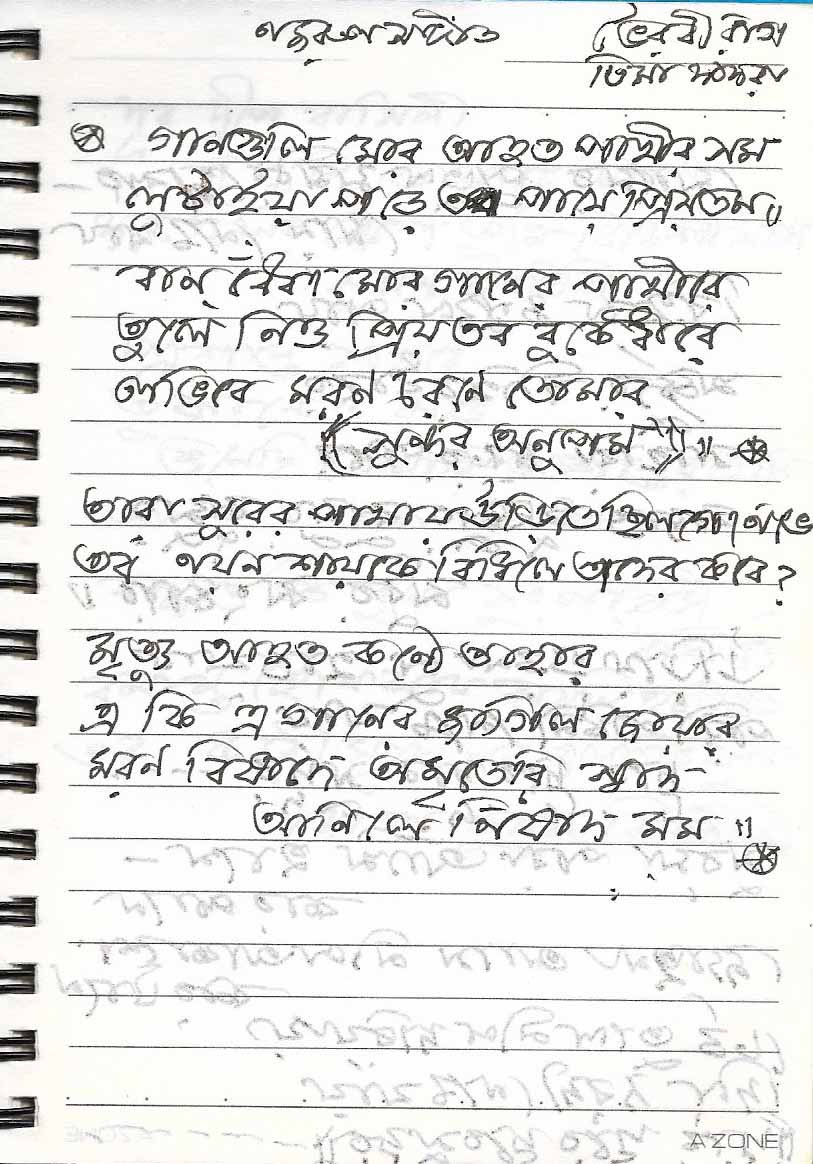 নজরুল সঙ্গীত
ভৈরবী রাগ
গানগুলি মোর আহত পাখীর সম
লুটাইয়া পড়ে তব পায়ে প্রিয়তম॥
বান বেঁধা মোর গানের পাখীরে
তুলে নিও প্রিয় তব বুকে ধীরে
লভিবে মরন চরনে তোমার
((সুন্দর অনুপম))॥
তারা সুরের পাখায় উড়িতেছিল গো নভে
তব নয়ন শায়কে বিঁধিলে তাদের কবে?
মৃত্যু আহত কন্ঠে তাহার
এ কি এ গানের জাগিল জোয়ার
মরন বিষাদে অমৃতের স্বাদ
আনিলে নিষাদ মম॥
A'ZONE